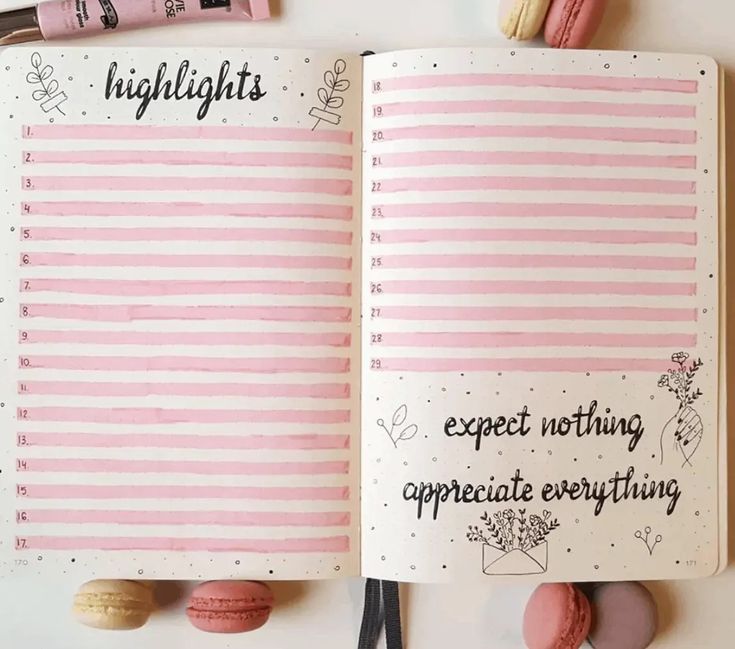 VIE
ROSE
highlights
1.
2.
3.
4.
5.
6.
7.
8.
9.
10.
11.
12.
13.
14.
15.
16.
17.
170
18.
19.
20.
21.
22
23.
24.
25.
26.
27.
28.
29.
expect nothing
appreciate everything
171